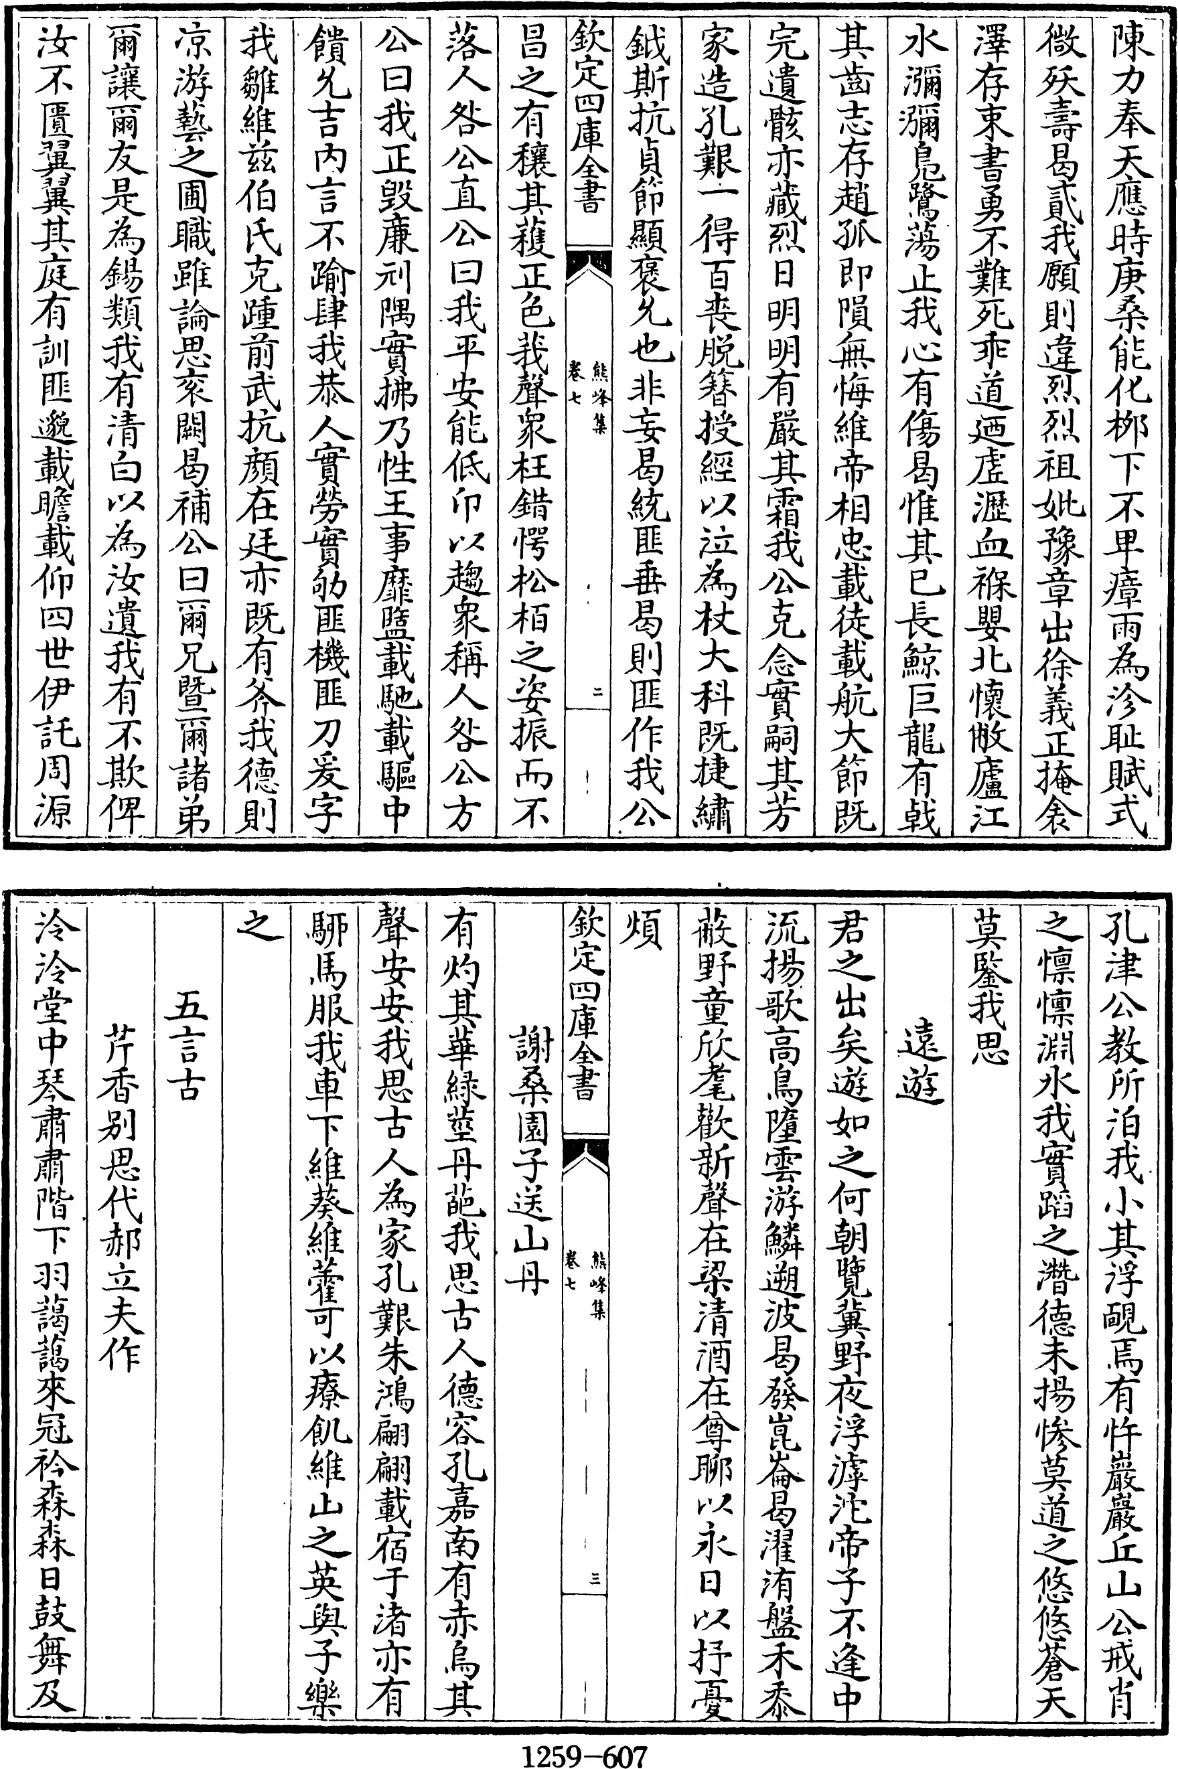 陳力奉天應時庚桑能化栁下不卑瘴雨為沴耻賦式
微殀壽曷貳我願則違烈烈祖妣豫章出徐義正掩衾
澤存束書勇不難死乖道廼虗瀝血褓嬰北懷敝廬江
水瀰瀰鳬鷺蕩止我心有傷曷惟其已長鯨巨龍有戟
其齒志存趙孤即隕無悔維帝相忠載徒載航大節既
完遺骸亦藏烈日明明有嚴其霜我公克念實嗣其芳
家造孔艱一得百喪脱簪授經以泣為杖大科既捷繡
鉞斯抗貞節顯褒允也非妄曷統匪垂曷則匪作我公
欽定四庫全書
熊峰集
卷七
二
昌之有穰其穫正色我聲衆枉錯愕松栢之姿振而不
落人咎公直公曰我平安能低卬以趨衆稱人咎公方
公曰我正毁亷刓隅實拂乃性王事靡盬載馳載驅中
饋允吉内言不踰肆我恭人實勞實劬匪機匪刀爰字
我雛維兹伯氏克踵前武抗顔在廷亦既有斧我德則
凉游藝之圃職雖論思衮闕曷補公曰爾兄暨爾諸弟
爾讓爾友是為錫類我有清白以為汝遺我有不欺俾
汝不匱翼翼其庭有訓匪邈載瞻載仰四世伊託周源
孔津公教所泊我小其浮覥焉有忤巖巖丘山公戒肖
之懍懍淵氷我實蹈之潛德未揚慘莫道之悠悠蒼天
莫鑒我思
逺遊
君之出矣遊如之何朝覽冀野夜浮滹沱帝子不逢中
流揚歌高鳥墮雲游鱗遡波曷發崑崙曷濯洧盤禾黍
蔽野童欣耄歡新聲在梁清酒在尊聊以永日以抒憂
煩
欽定四庫全書
熊峰集
卷七
三
謝桑園子送山丹
有灼其華緑莖丹葩我思古人德容孔嘉南有赤烏其
聲安安我思古人為家孔艱朱鴻翩翩載宿于渚亦有
駵馬服我車下維葵維藿可以療飢維山之英與子樂
之
五言古
芹香别思代郝立夫作
泠泠堂中琴肅肅階下羽藹藹來冠衿森森日鼓舞及
1259-607